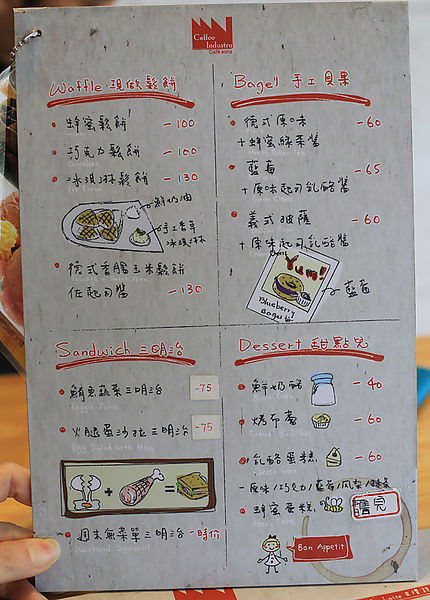 Coffee
Industry
Café sora
Waffle 現做鬆餅
蜂蜜鬆餅 -100
巧克力鬆餅 -100
冰淇淋鬆餅 -130
鮮奶油
手工香草
冰淇淋
德式香腸玉米鬆餅
佐起司醬 -130
Bagel 手工貝果
德式原味 -60
+蜂蜜綠茶醬
藍莓 -65
+原味起司乳酪醬
義式披薩 -60
+原味起司乳酪醬
Yum!
Blueberry
Bagel
藍莓
Sandwich 三明治
鮪魚蔬菜三明治 -75
Veggie Tuna
火腿蛋沙拉三明治 -75
Egg Salad with Ham
+ =
週末無菜單三明治 -時價
Weekend Special
Dessert 甜點兒
鮮奶酪 -40
烤布蕾 -60
乳酪蛋糕 -60
-原味/巧克力/藍莓/
蜂蜜蛋糕
Bon Appetit